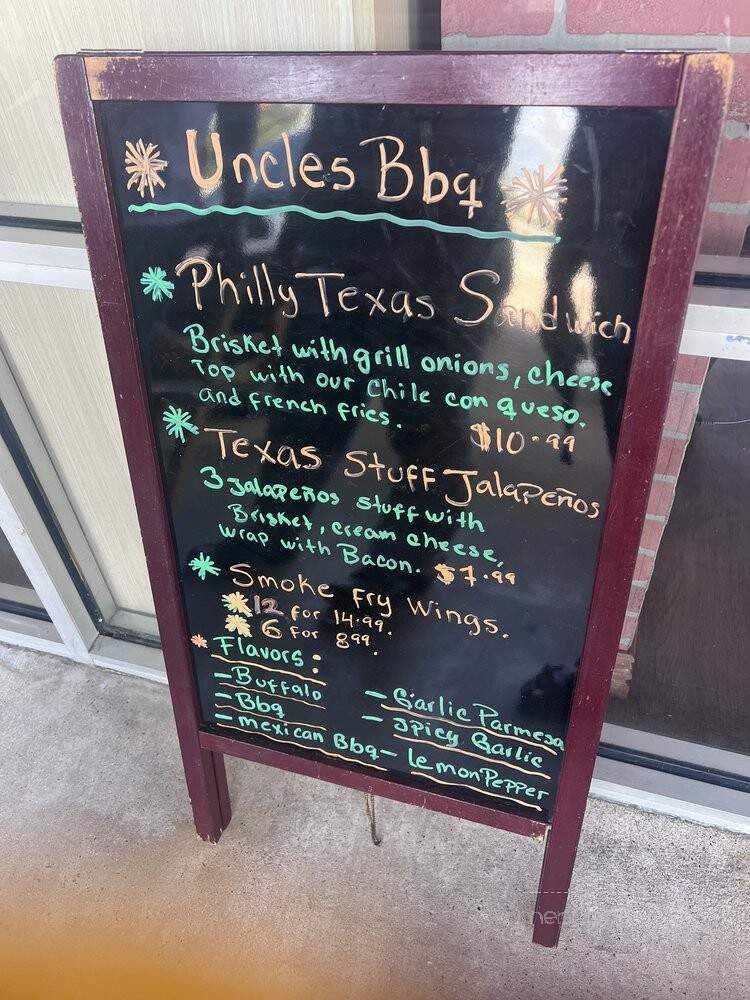 Uncles Bbq
Philly Texas Sandwich
Brisket with grill onions, cheese
Top with our Chile con queso.
and french fries.
$10.99
Texas Stuff Jalapeños
3 Jalapeños stuff with
Brisket, cream cheese,
wrap with Bacon. $7.99
Smoke Fry Wings.
12 for 14.99.
6 for 899.
Flavors:
- Buffalo
- Bbq
- mexican Bbq
- Garlic Parmesa
- Spicy Garlic
- Lemon Pepper